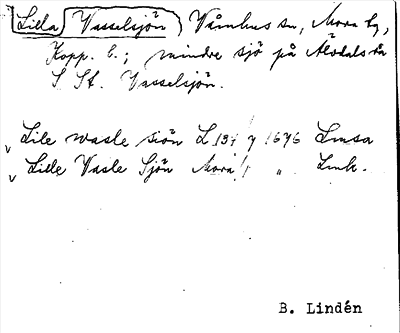 Lilla Vasselsjön, Våmhus sn, Mora tg,
Kopp. l.; mindre sjö på Älvdals
S St. Vasselsjön.
v Lile wasle siön L 13 1676 Lmsa
v Lille Vasle Sjön Mora " Lmk.
B. Lindén